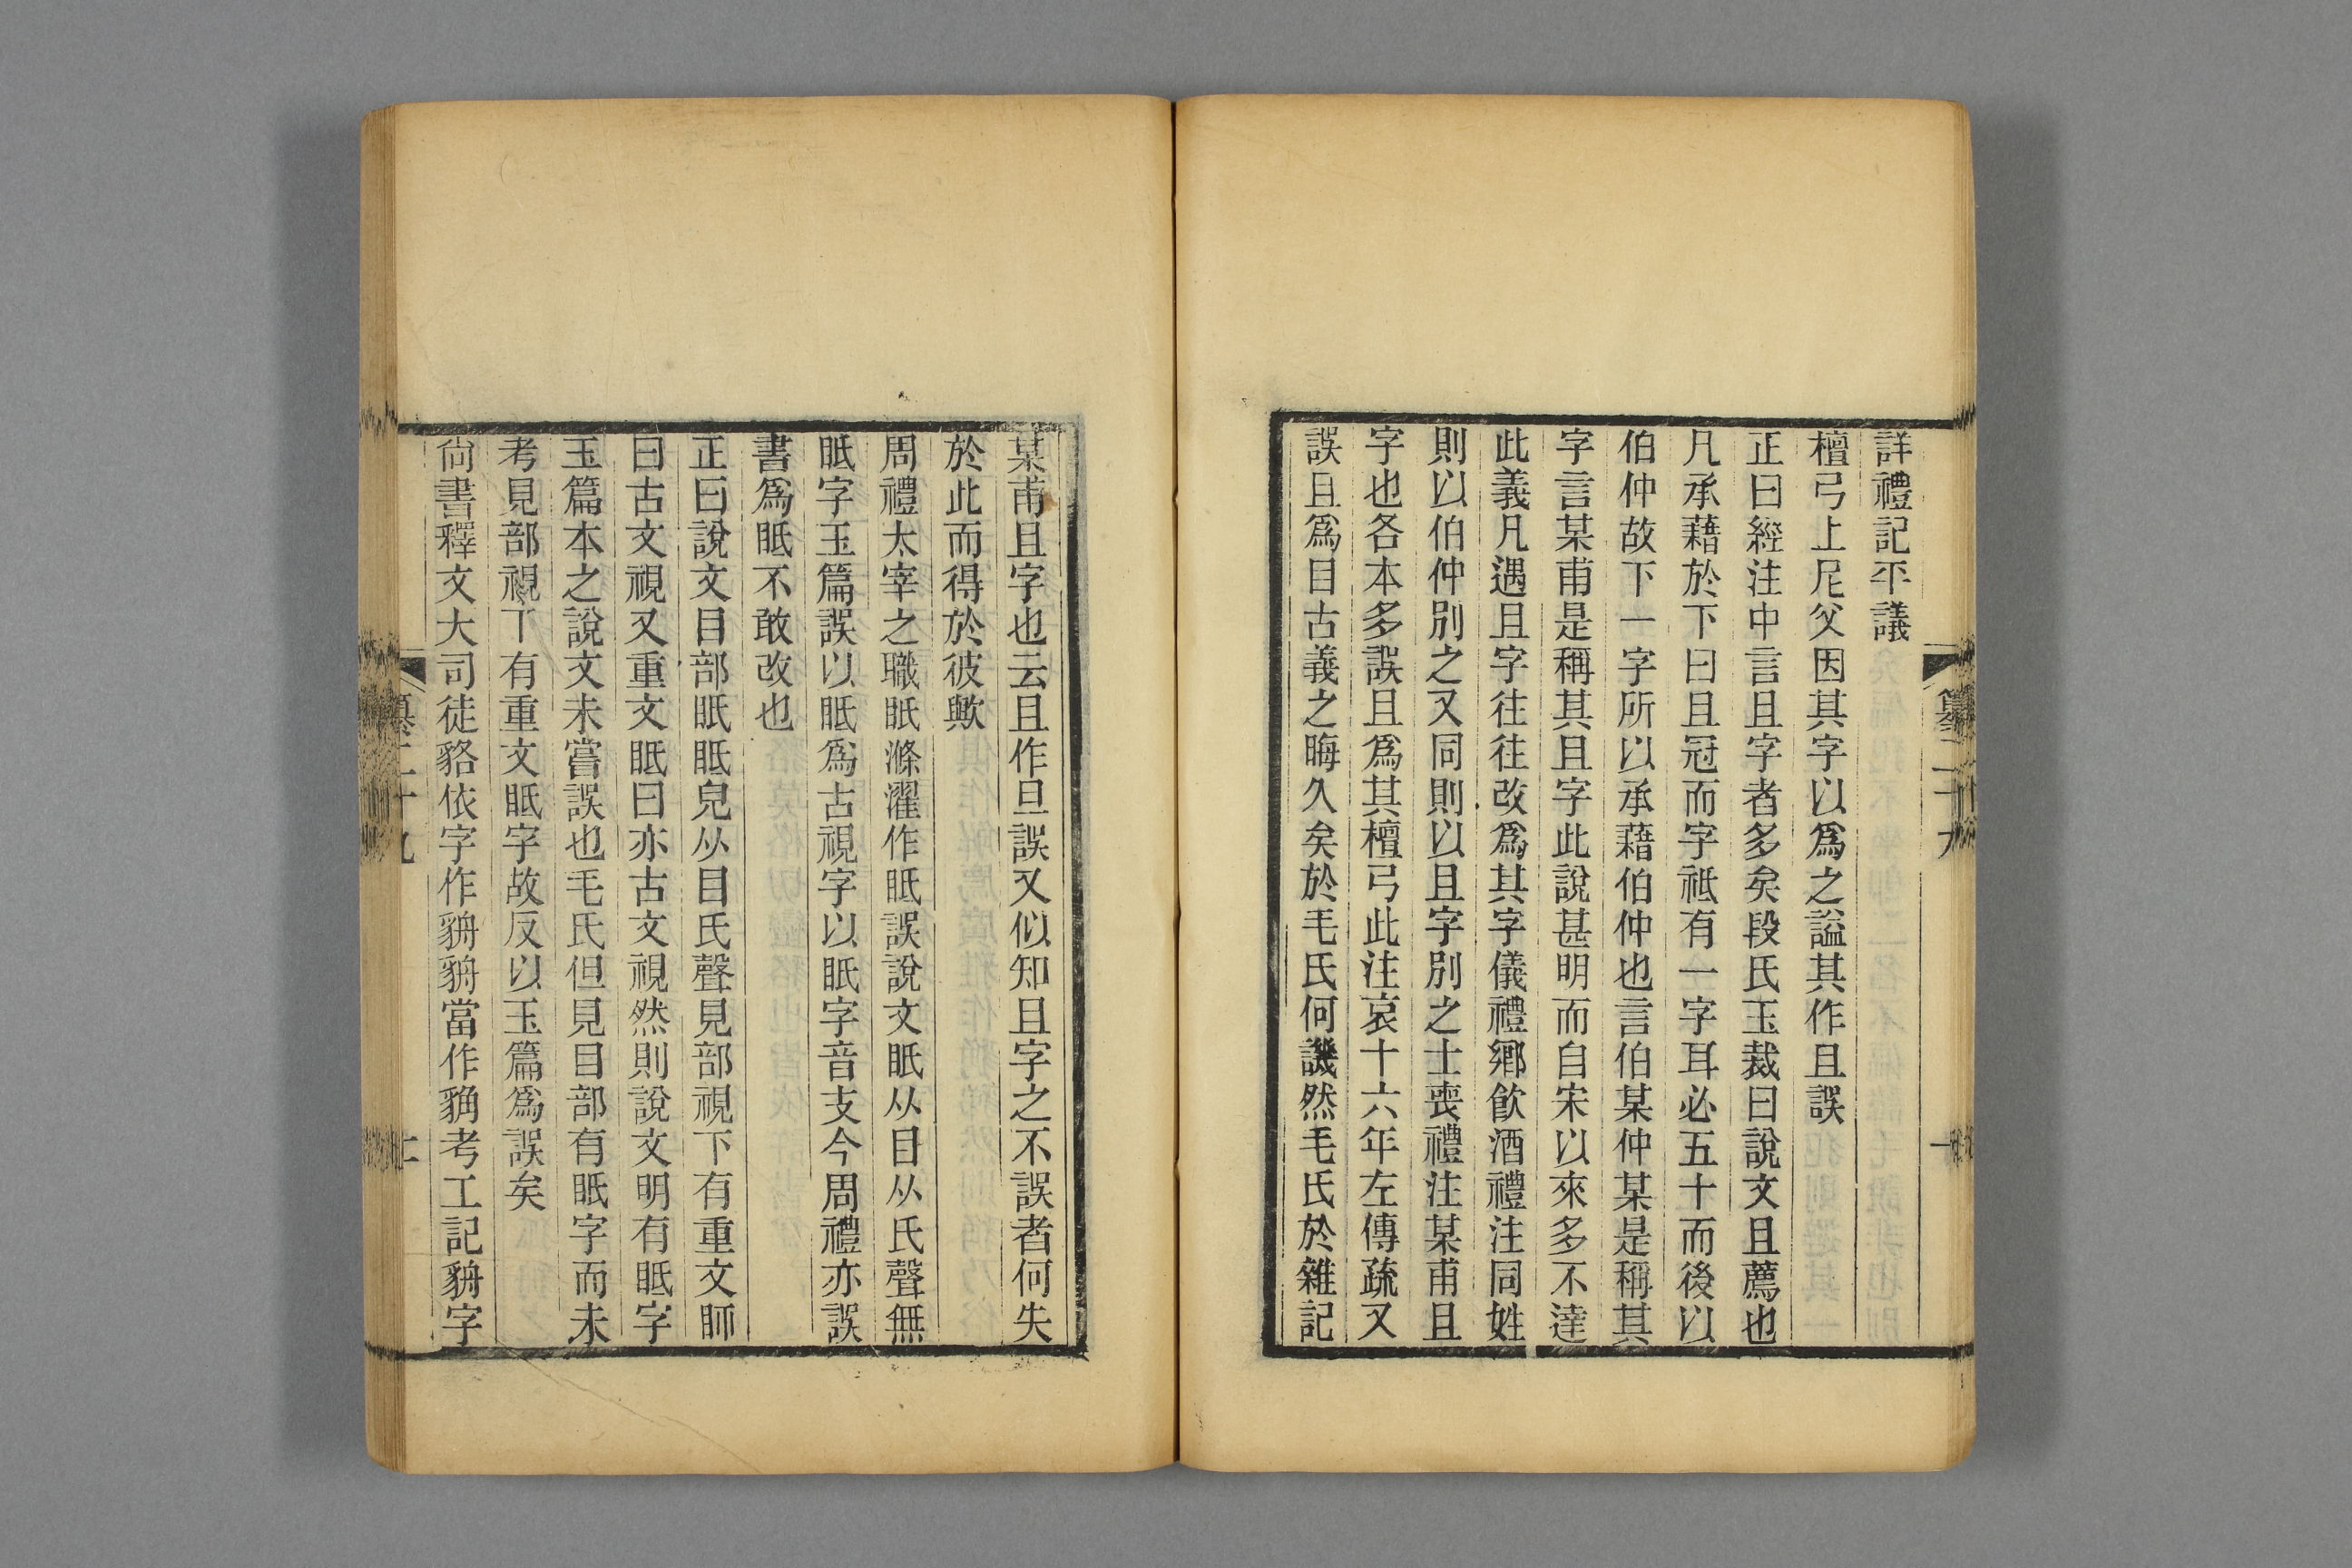 詳禮記平議
檀弓上尼父因其字以爲之謚其作且誤
正曰經注中言且字者多矣段氏玉裁曰說文且薦也
凡承藉於下曰且冠而字祗有一字耳必五十而後以
伯仲故下一字所以承藉伯仲也言伯某仲某是稱其
字言某甫是稱其且字此說甚明而自宋以來多不達
此義凡遇且字往往改爲其字儀禮鄉飮酒禮注同姓
則以伯仲別之又同則以且字別之士喪禮注某甫且
字也各本多誤且爲其檀弓此注哀十六年左傳疏又
誤且爲目古義之晦久矣於毛氏何譏然毛氏於雜記
某甫且字也云且作旦誤又似知且字之不誤者何失
於此而得於彼歟
周禮太宰之職眂滌濯作眡誤說文眂从目从氏聲無
眡字玉篇誤以眡爲古視字以眂字音支今周禮亦誤
書爲眡不敢改也
正曰說文目部眂眂皃从目氏聲見部視下有重文眎
曰古文視又重文眡曰亦古文視然則說文明有眡字
玉篇本之說文未嘗誤也毛氏但見目部有眂字而未
考見部視下有重文眡字故反以玉篇爲誤矣
尙書釋文大司徒貉依字作貈貈當作貈考工記貈字
纂二十九